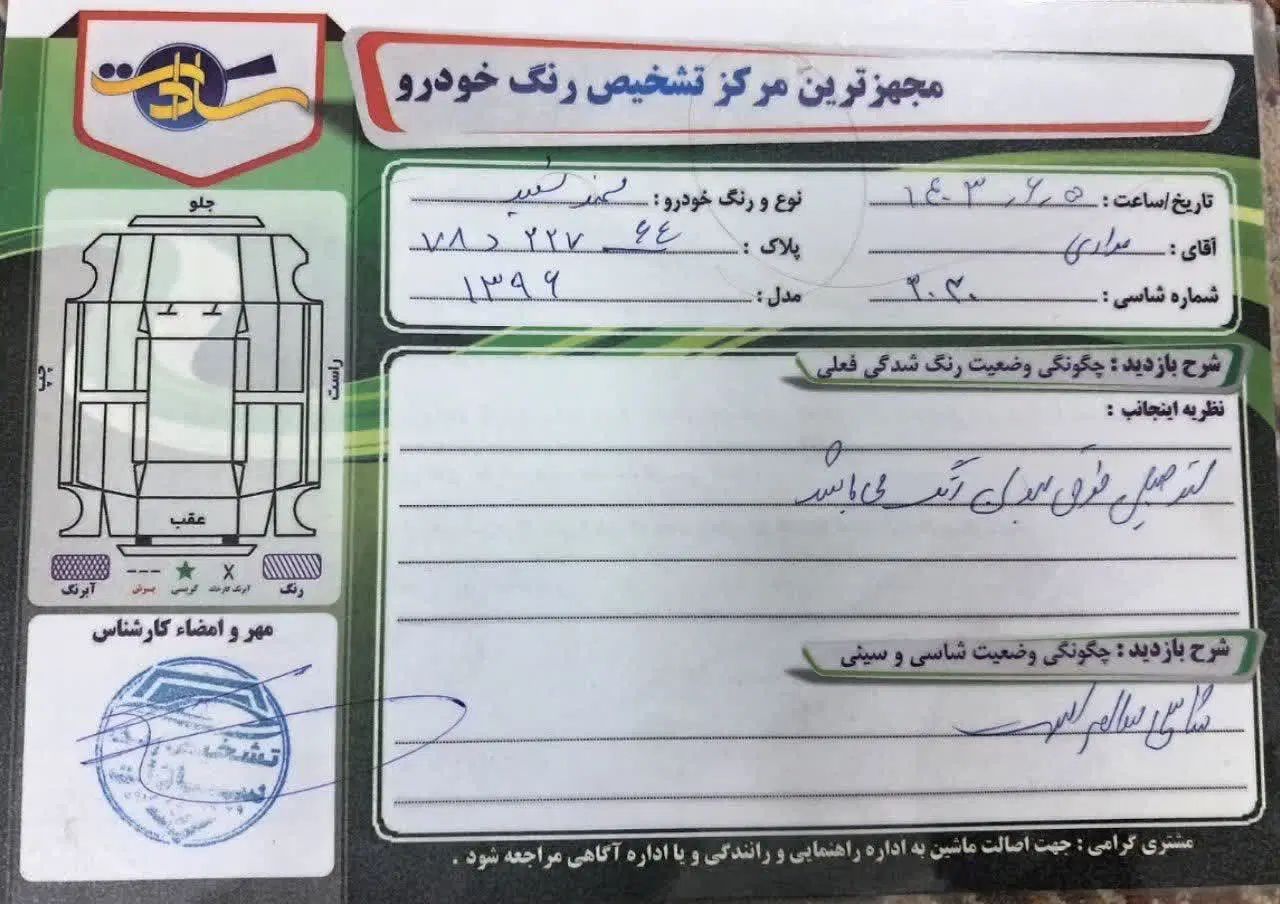 سادات
مجهزترین مرکز تشخیص رنگ خودرو
تاریخ/ساعت : ۱۴۰۳٫۶٫۵
نوع و رنگ خودرو : سمند سفید
آقای :
پلاک : ۷۸ د ۲۲۷ ۶۴
شماره شاسی :
مدل : ۱۳۹۶
شرح بازدید : چگونگی وضعیت رنگ شدگی فعلی
نظریه اینجانب :
اتومبیل فوق بدون رنگ می باشد
شرح بازدید : چگونگی وضعیت شاسی و سینی
شاسی سالم است
مشتری گرامی : جهت اصالت ماشین به اداره راهنمایی و رانندگی و یا اداره آگاهی مراجعه شود .
جلو
چپ
راست
عقب
رنگ
آبرنگ کارخانه
گریسی
پسوش
آبرنگ
مهر و امضاء کارشناس
تشخیص